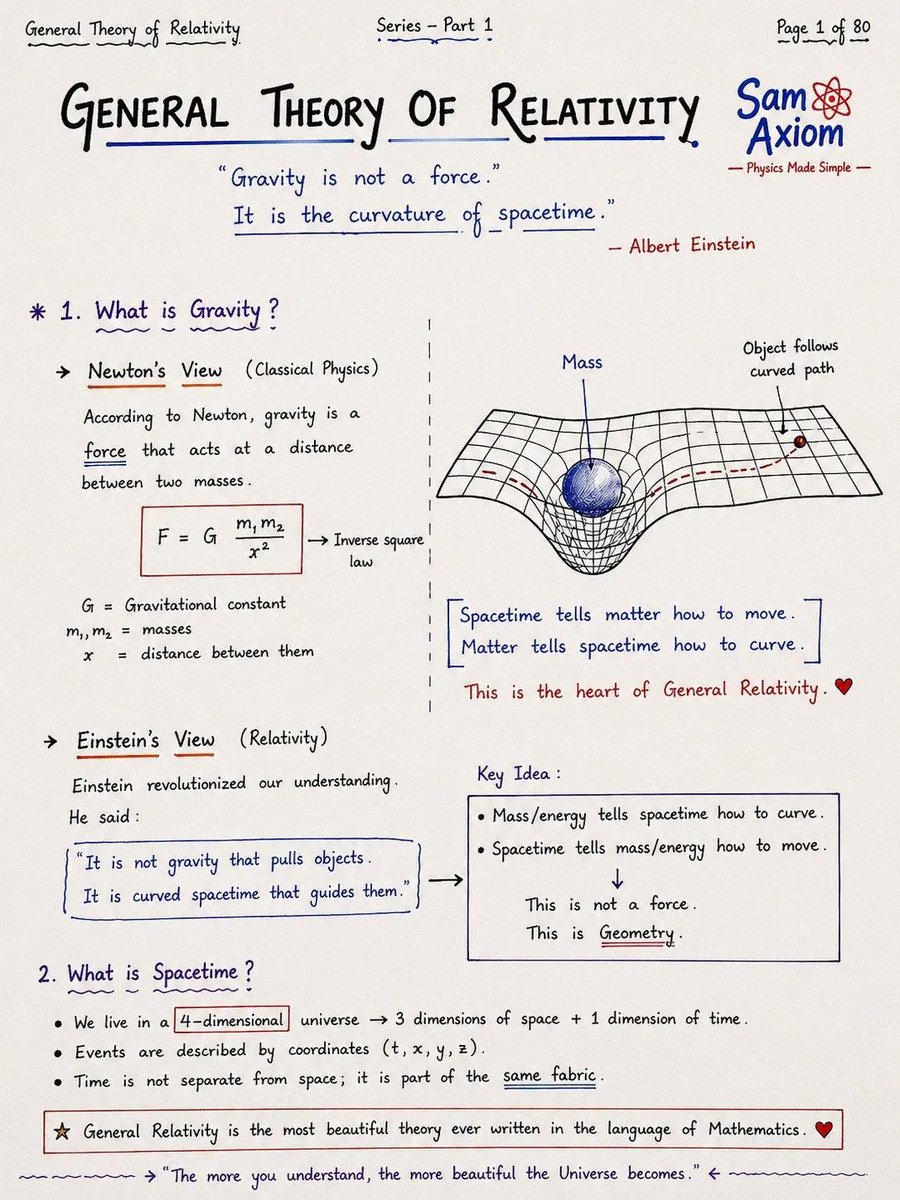 General Theory of Relativity
Series – Part 1
Page 1 of 80
General Theory Of Relativity
Sam
Axiom
— Physics Made Simple —
"Gravity is not a force."
It is the curvature of spacetime."
— Albert Einstein
* 1. What is Gravity?
→ Newton's View (Classical Physics)
According to Newton, gravity is a
force that acts at a distance
between two masses.
F = G m₁m₂/x² → Inverse square
law
G = Gravitational constant
m₁, m₂ = masses
x = distance between them
Mass
Object follows
curved path
Spacetime tells matter how to move.
Matter tells spacetime how to curve.
This is the heart of General Relativity. ♥
→ Einstein's View (Relativity)
Einstein revolutionized our understanding.
He said:
"It is not gravity that pulls objects.
It is curved spacetime that guides them." →
Key Idea:
• Mass/energy tells spacetime how to curve.
• Spacetime tells mass/energy how to move.
↓
This is not a force.
This is Geometry.
2. What is Spacetime?
• We live in a 4-dimensional universe → 3 dimensions of space + 1 dimension of time.
• Events are described by coordinates (t, x, y, z).
• Time is not separate from space; it is part of the same fabric.
☆ General Relativity is the most beautiful theory ever written in the language of Mathematics. ♥
→ "The more you understand, the more beautiful the Universe becomes." ←